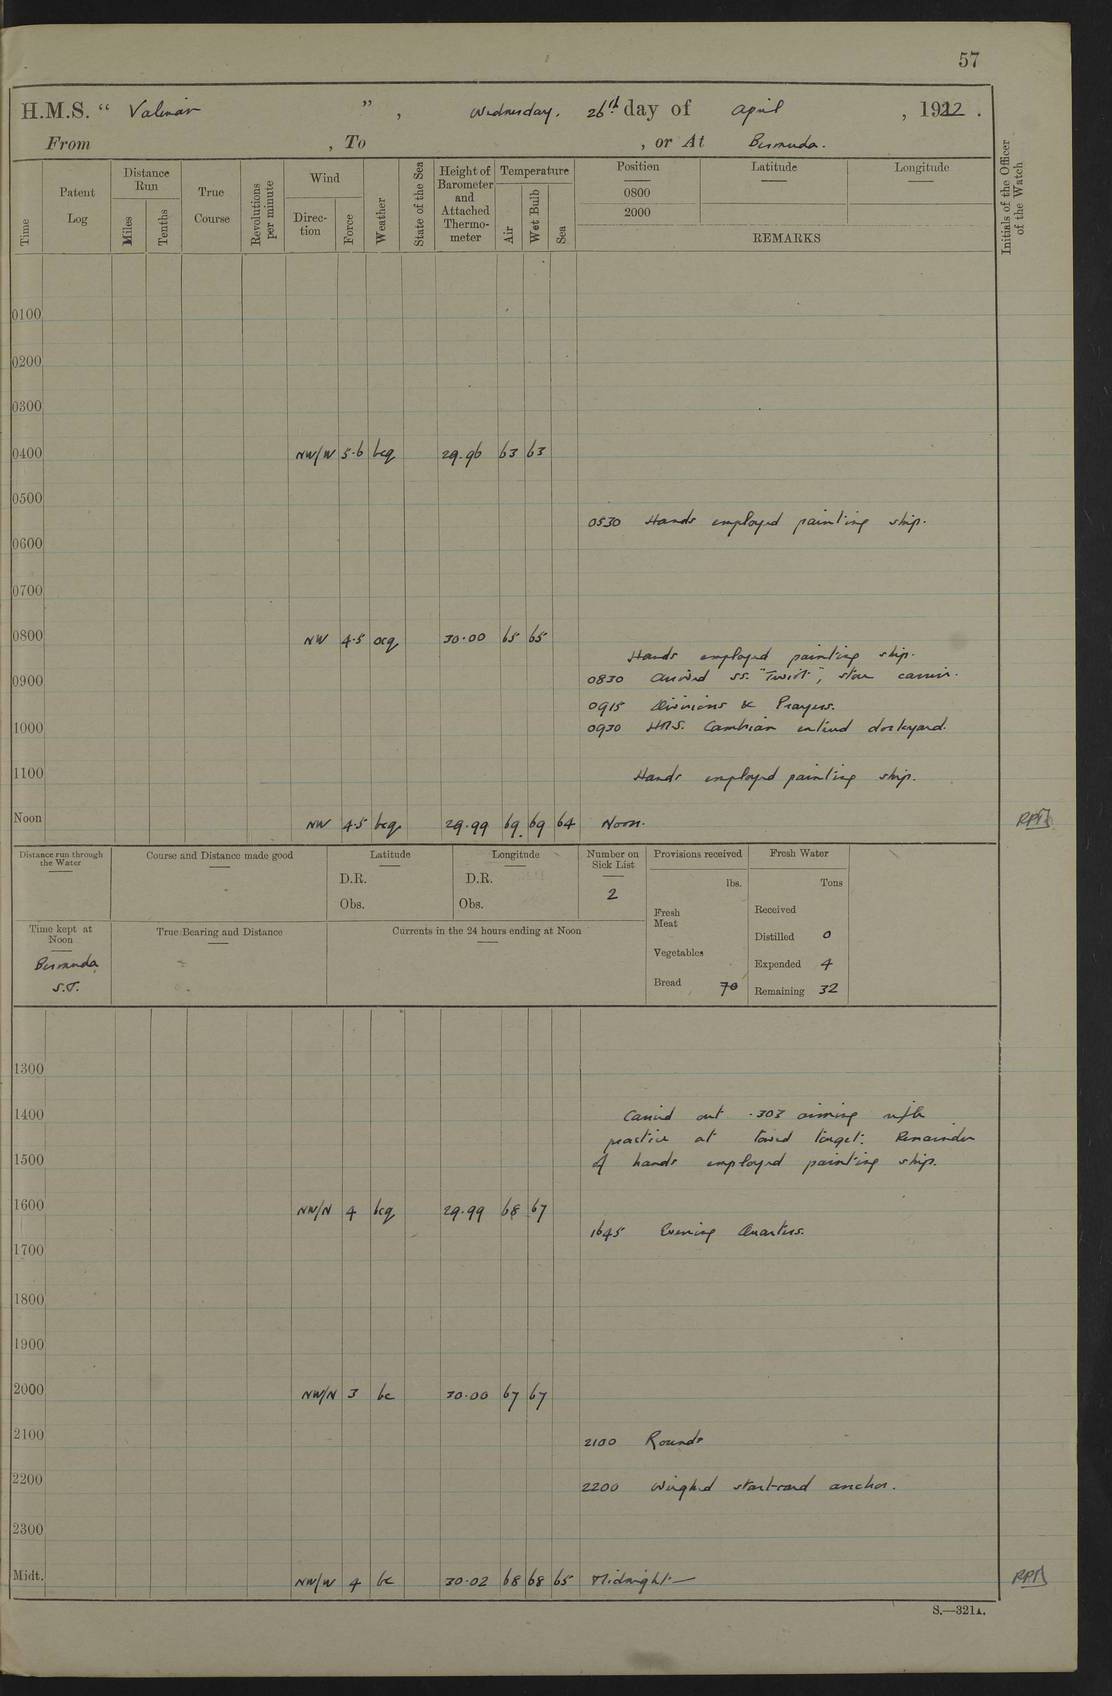 57
H.M.S. “ Valerian ” , Wednesday. 26th day of April , 1922 .
From , To , or At Bermuda.
Time
Patent Log
Distance Run
Miles
Tenths
True Course
Revolutions per minute
Wind
Direction
Force
Weather
State of the Sea
Height of Barometer and Attached Thermometer
Temperature
Air
Wet Bulb
Sea
Position Latitude Longitude
0800
2000
REMARKS
Initials of the Officer of the Watch
0100
0200
0300
0400 NW/W 5·6 bcq 29.96 63 63
0500
0530 Hands employed painting ship.
0600
0700
0800 NW 4·5 ocq 30·00 65 65
Hands employed painting ship.
0830 Arrived SS. , store carrier.
0900
0915 Divisions & Prayers.
0930 HMS. Cambrian entered dockyard.
1000
1100 Hands employed painting ship.
Noon NW 4·5 bcq 29·99 69 69 64 Noon.
Distance run through the Water
Course and Distance made good
Latitude
D.R.
Obs.
Longitude
D.R.
Obs.
Number on Sick List
2
Provisions received
lbs.
Fresh Meat
Vegetables
Bread 70
Fresh Water
Tons
Received
Distilled 0
Expended 4
Remaining 32
Time kept at Noon
Bermuda
S.T.
True Bearing and Distance
Currents in the 24 hours ending at Noon
1300
1400 Carried out .303 aiming rifle
practice at towed target. Remainder
1500 of hands employed painting ship.
1600 NW/N 4 bcq 29·99 68 67
1645 Evening Quarters.
1700
1800
1900
2000 NW/N 3 bc 30·00 67 67
2100 2100 Rounds
2200 2200 Weighed starboard anchor.
2300
Midt. NW/W 4 bc 30·02 68 68 65 Midnight
S.—321A.